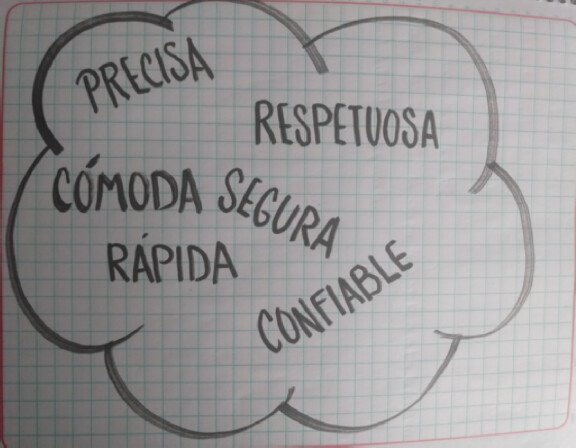 PRECISA
RESPETUOSA
CÓMODA SEGURA
RÁPIDA
CONFIABLE